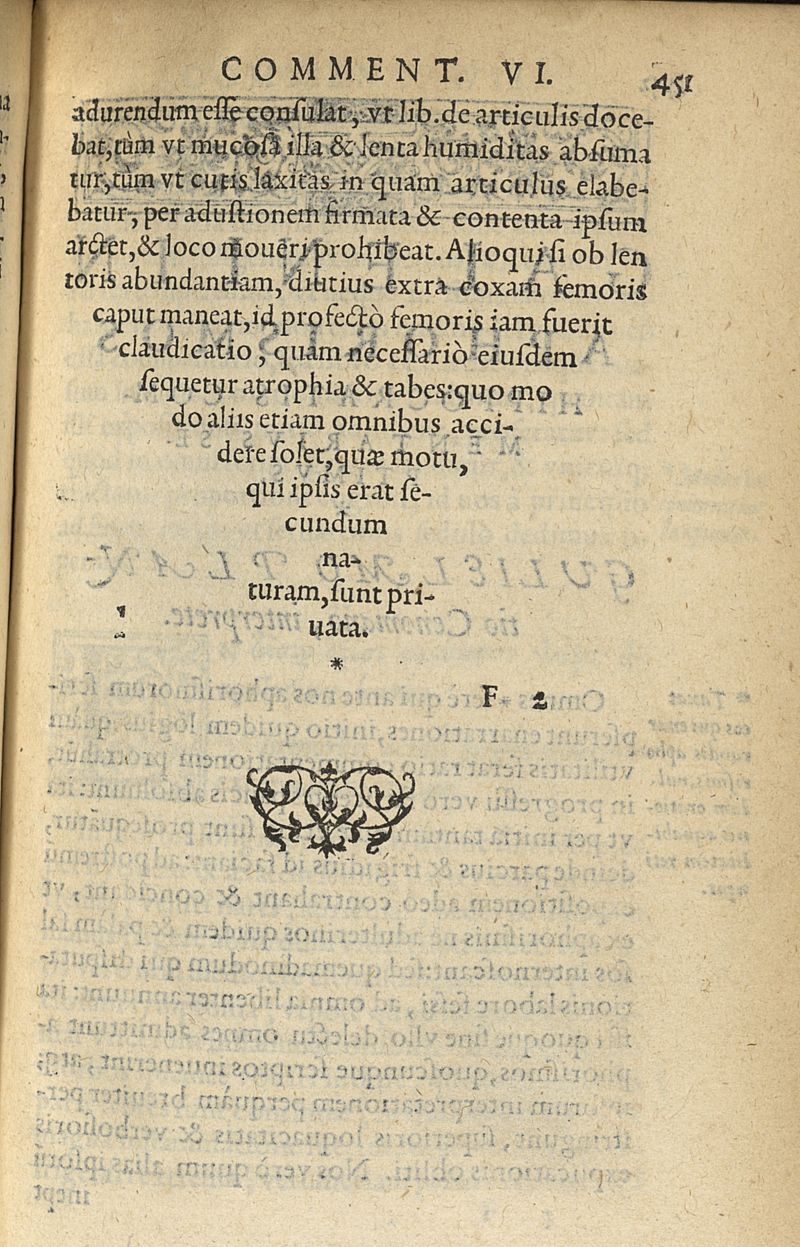 COMMENT. VI. 451
adurendum esse consulat, vt lib. de articulis doce-
bat, tùm vt mucosa illa & lenta humiditas absuma
tur, tùm vt cutis laxitas in quam articulus elabe-
batur, per adustionem firmata & contenta ipsum
arctet, & loco moueri prohibeat. Alioqui si ob len
toris abundantiam, diutius extra coxam femoris
caput maneat, id profectò femoris iam fuerit
claudicatio, quam necessariò eiusdem
sequetur atrophia & tabes: quo mo
do aliis etiam omnibus acci-
dere solet, quæ motu,
qui ipsis erat se-
cundum
na-
turam, sunt pri-
uata.
*
F 2